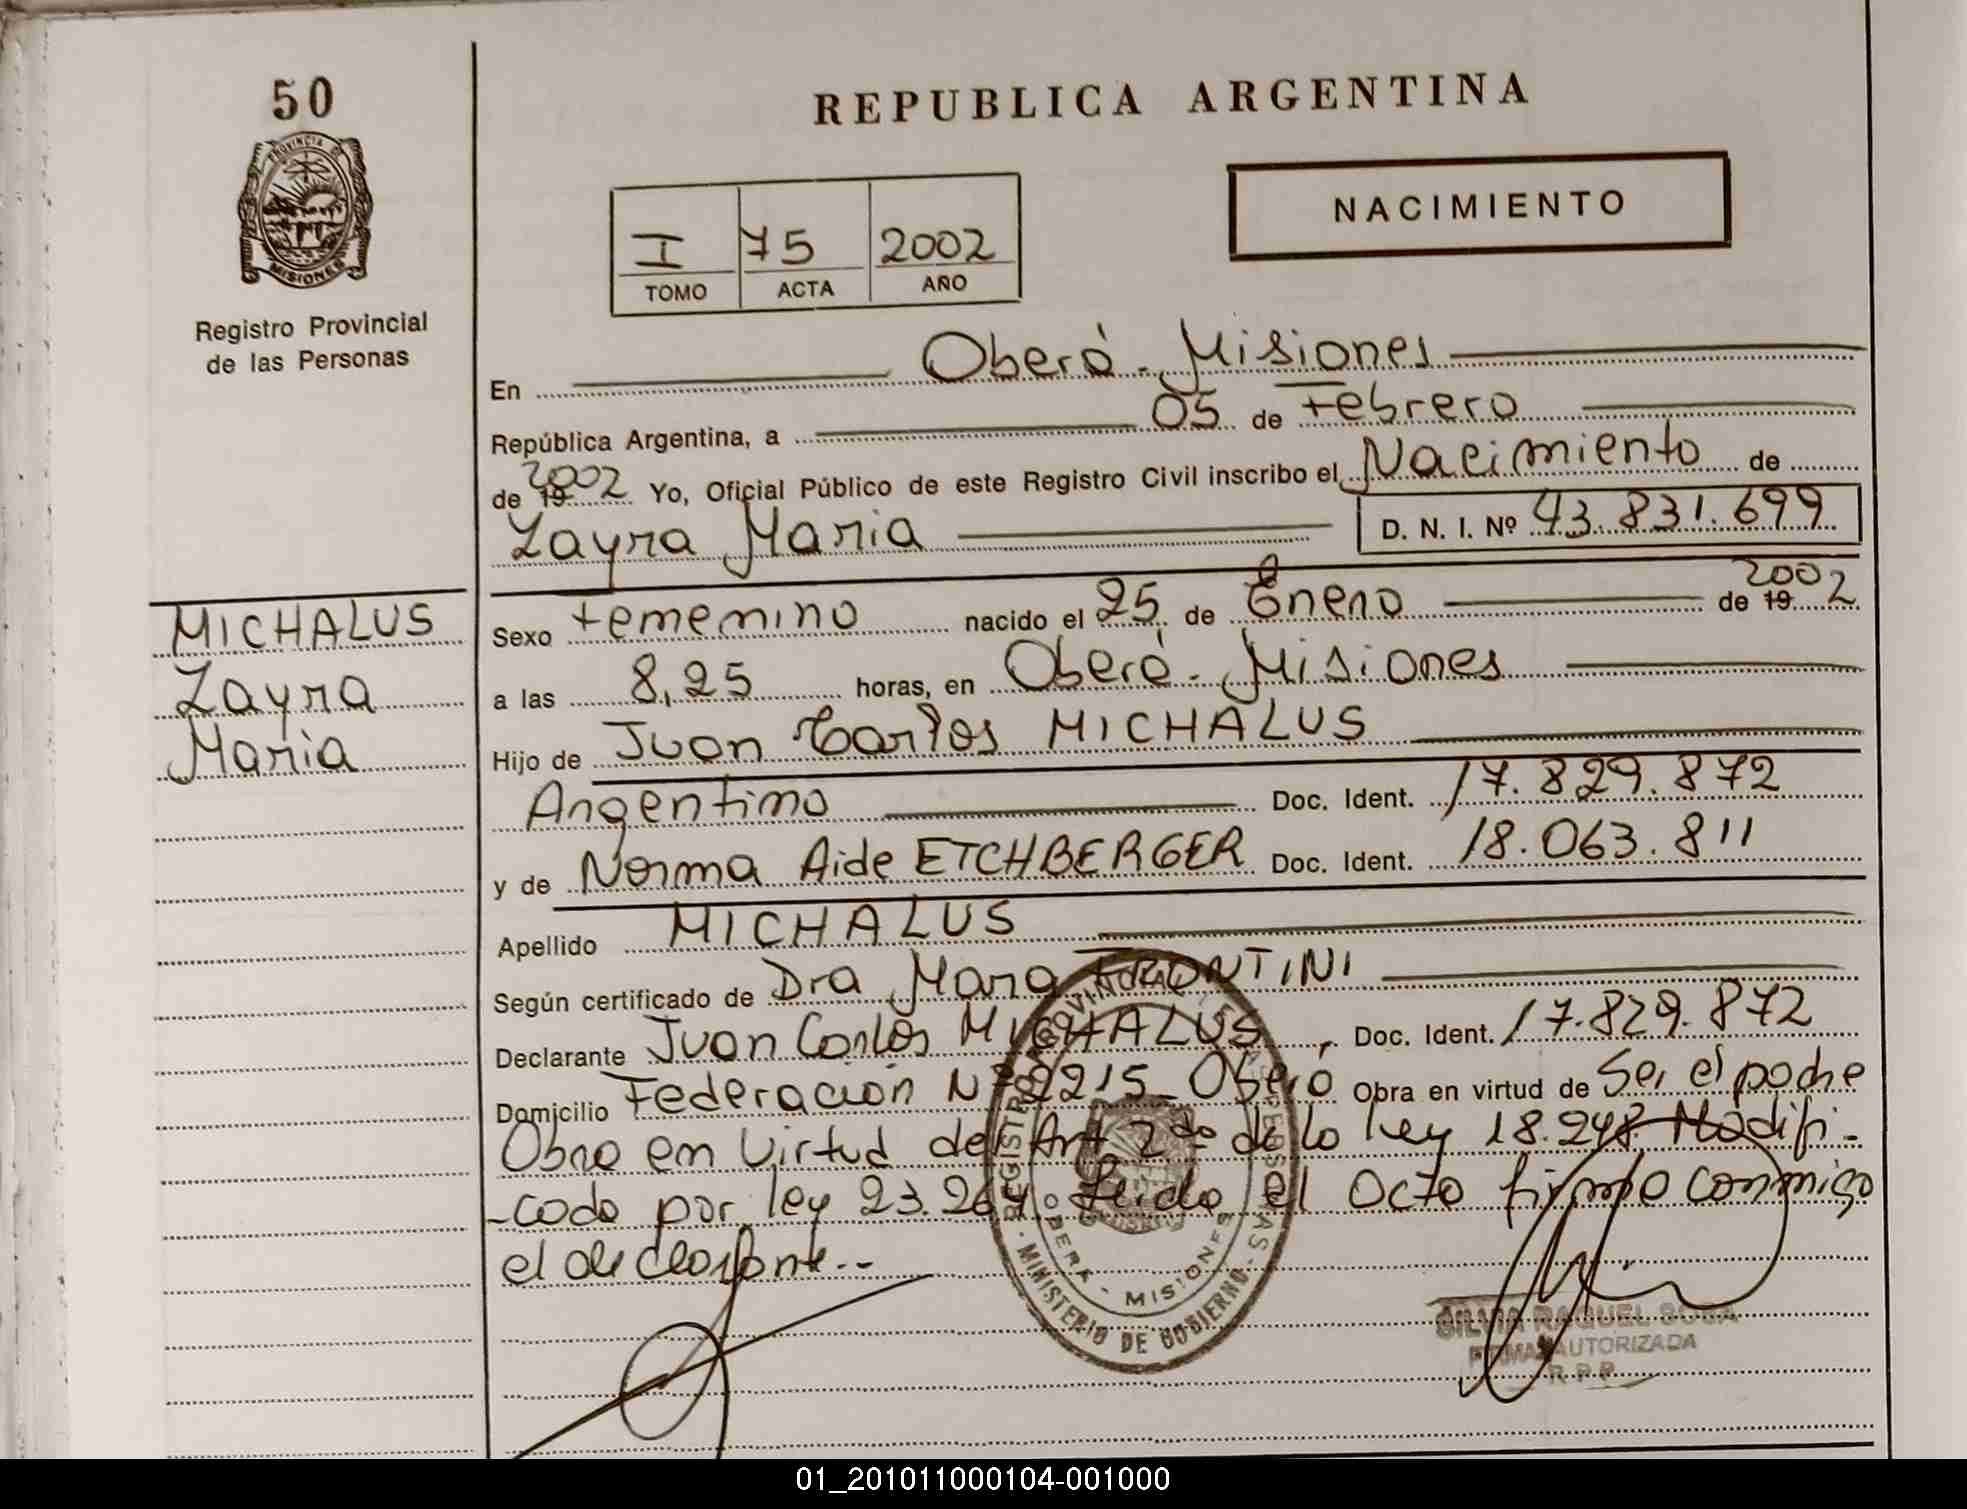 50
PROVINCIA DE
MISIONES
Registro Provincial
de las Personas
MICHALUS
Zayra
Maria
REPUBLICA ARGENTINA
NACIMIENTO
I 75 2002
TOMO ACTA AÑO
En Oberá - Misiones
República Argentina, a 05 de Febrero
de 19 2002 Yo, Oficial Público de este Registro Civil inscribo el Nacimiento de
Zayra Maria D. N. I. Nº 43.831.699
Sexo Femenino nacido el 25 de Enero de 19 2002
a las 8,25 horas, en Oberá - Misiones
Hijo de Juan Carlos MICHALUS
Argentino Doc. Ident. 17.829.872
y de Norma Aide ETCHBERGER Doc. Ident. 18.063.811
Apellido MICHALUS
Según certificado de Dra Mara FRONTINI
Declarante Juan Carlos MICHALUS, Doc. Ident. 17.829.872
Domicilio Federación Nº 2215 - Oberá Obra en virtud de Ser el padre
Obra en Virtud del Art 2do de la ley 18.248 Modifi-
-cado por ley 23.264. Leida el Acta firma conmigo
el declarante.--
REGISTRO PROVINCIAL DE LAS PERSONAS
OBERA - MISIONES
MINISTERIO DE GOBIERNO
SILVIA RAQUEL SOSA
FIRMA AUTORIZADA
R.P.P.
01_201011000104-001000